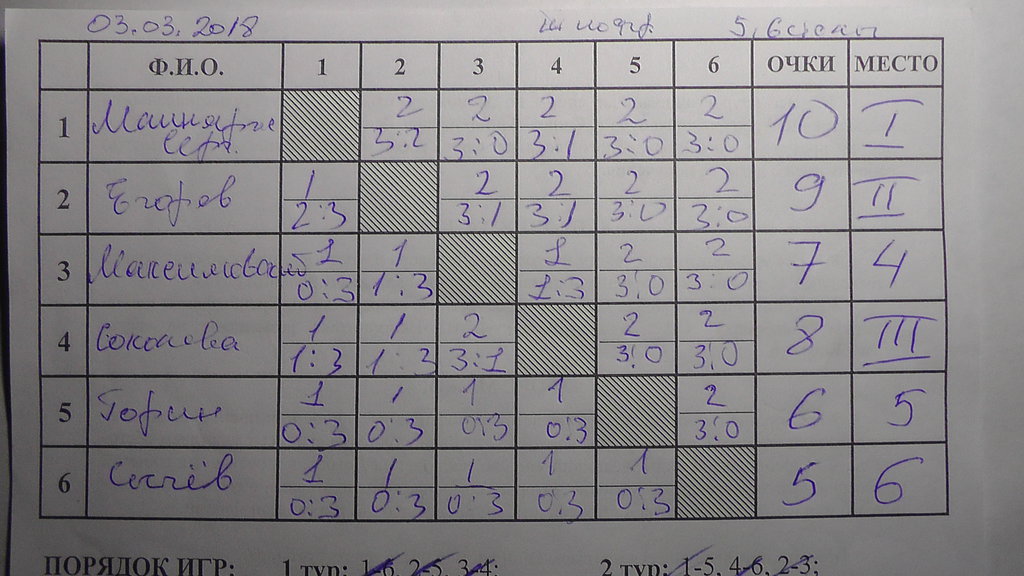 03.03.2018 5, 6 столы
Ф.И.О. 1 2 3 4 5 6 ОЧКИ МЕСТО
1 2 2 2 2 2 10 I
3:2 3:0 3:1 3:0 3:0
2 Егоров 1 2 2 2 2 9 II
2:3 3:1 3:1 3:0 3:0
3 Максимовский 1 1 1 2 2 7 4
0:3 1:3 1:3 3:0 3:0
4 Соколова 1 1 2 2 2 8 III
1:3 1:3 3:1 3:0 3:0
5 Горин 1 1 1 1 2 6 5
0:3 0:3 0:3 0:3 3:0
6 1 1 1 1 1 5 6
0:3 0:3 0:3 0:3 0:3
ПОРЯДОК ИГР: 1 тур: 1-6, 2-5, 3-4; 2 тур: 1-5, 4-6, 2-3;